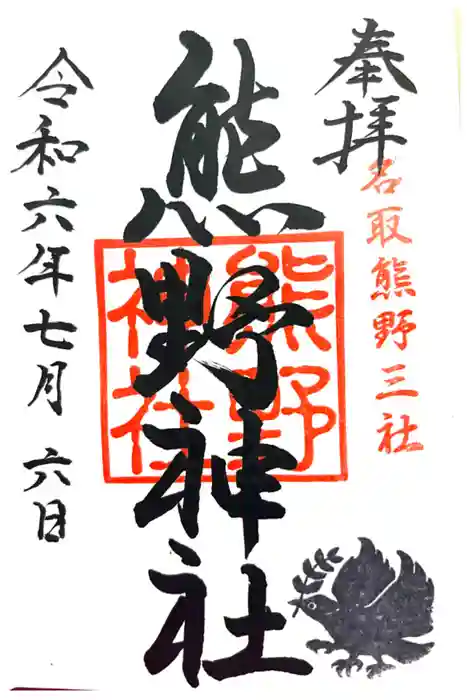 奉拝
名取熊野三社
熊野神社
熊野
神社
令和六年七月六日